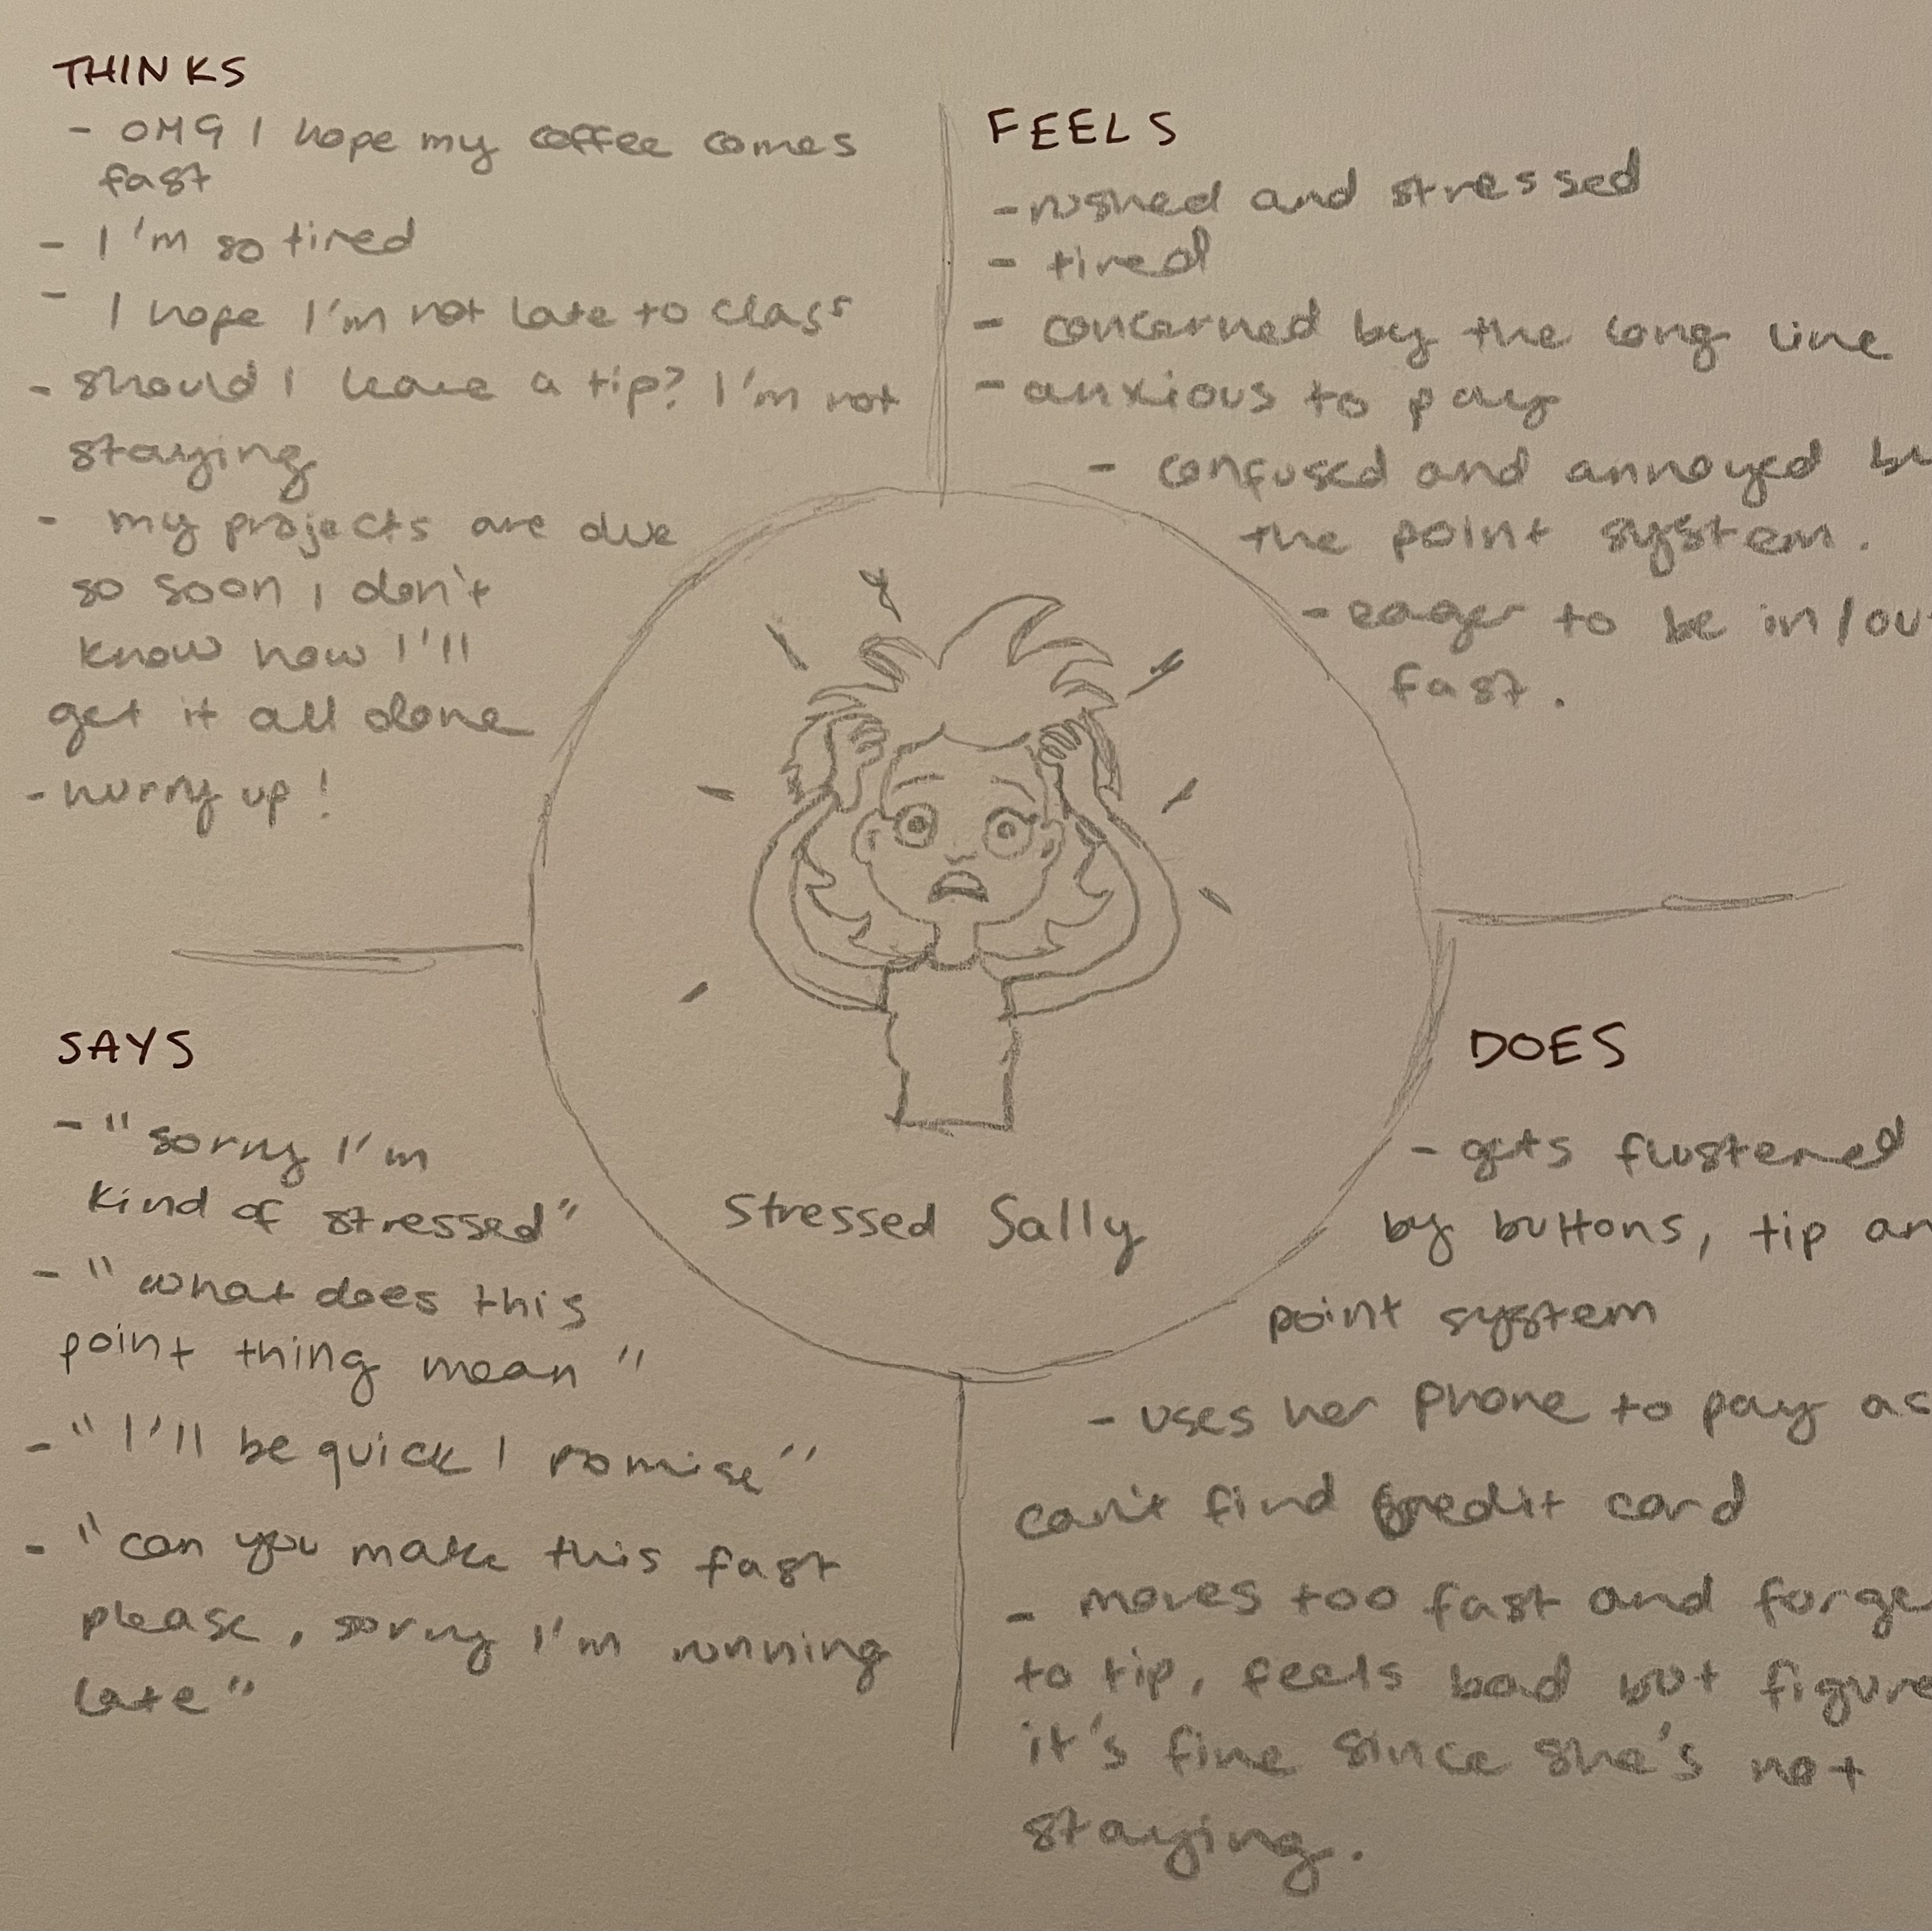 THINKS
- OMG I hope my coffee comes
fast
- I'm so tired
- I hope I'm not late to class
- should I leave a tip? I'm not
staying
- my projects are due
so soon, I don't
know how I'll
get it all done
- hurry up!
FEELS
- rushed and stressed
- tired
- concerned by the long line
- anxious to pay
- confused and annoyed
the point system.
- eager to be in/out
fast.
Stressed Sally
SAYS
- "sorry I'm
kind of stressed"
- "what does this
point thing mean"
- "I'll be quick I promise"
- "can you make this fast
please, sorry I'm running
late"
DOES
- gets flustered
by buttons, tip
point system
- uses her phone to pay as
can't find credit card
- moves too fast and
to tip, feels bad but
it's fine since she's not
staying.